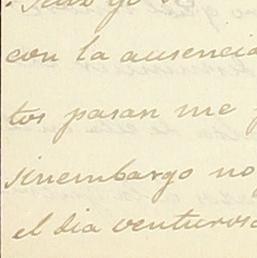 yo
con la ausencia
tos pasan me
sinembargo no
el dia venturos